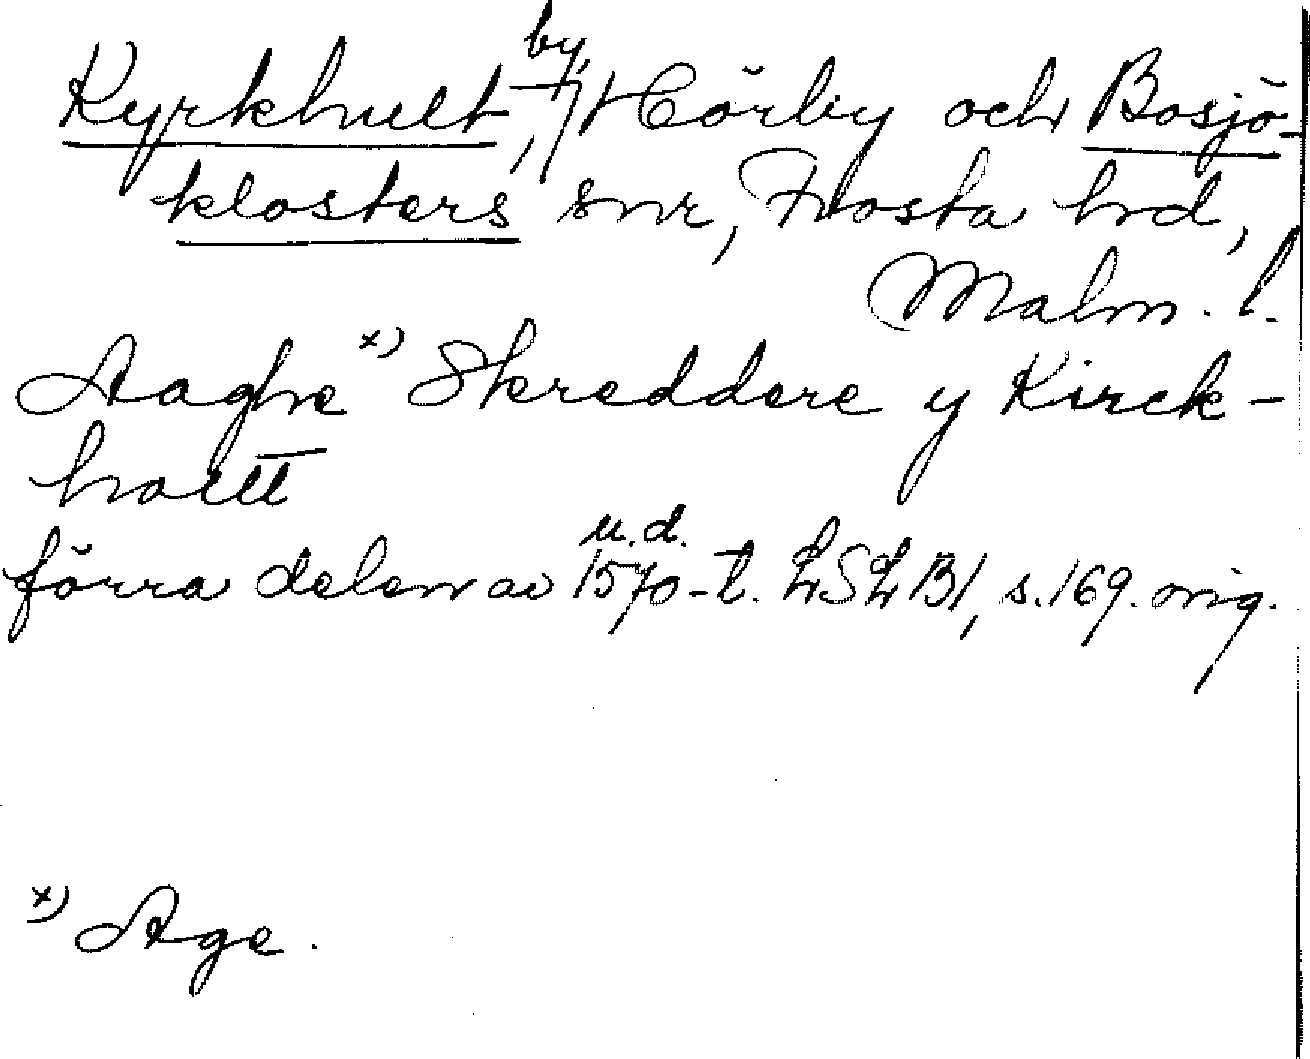 by,
Kyrkhult, Hörby och Bosjö-
klosters snr, Frosta hrd,
Malm. l.
Aaghe x) Skreddere y Kirck-
hollt
u.d.
förra delen av 1570-t. LSLB1, s. 169. orig.
x) Age.